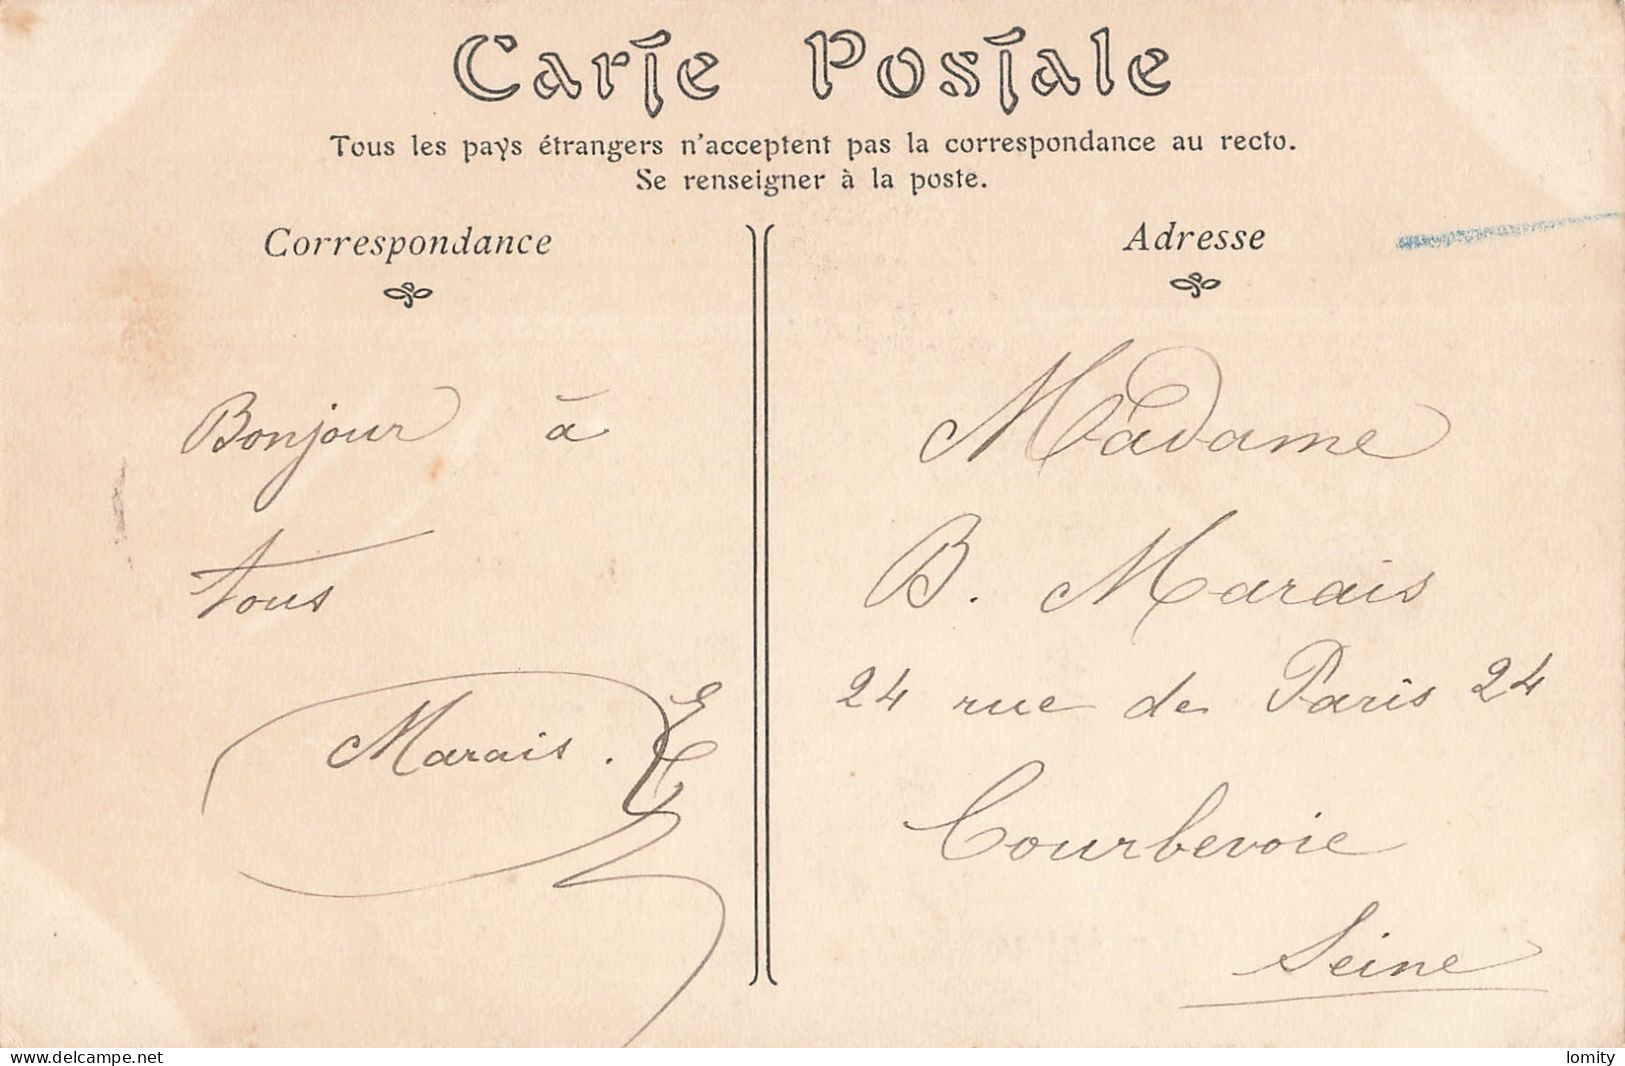 Carte Postale
Tous les pays étrangers n'acceptent pas la correspondance au recto.
Se renseigner à la poste.
Correspondance
Bonjour à
tous
Marais. E
Adresse
Madame
B. Marais
24 rue de Paris 24
Courbevoie
Seine
www.delcampe.net
lomity